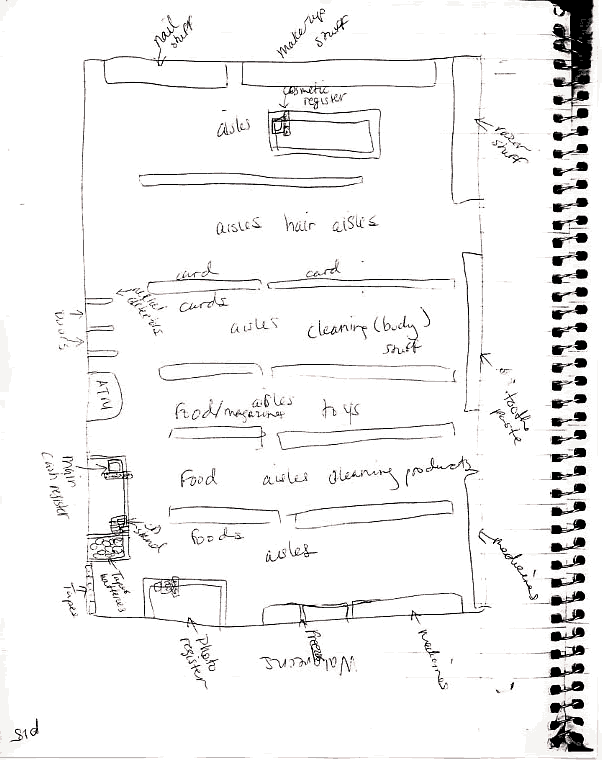 nail
stuff
makeup
stuff
cosmetic
register
aisles
razor
stuff
aisles hair aisles
card
card
cards
aisles
cleaning (body)
stuff
doors
ATM
tooth
paste
aisles
Food/magazines
toys
main
cash register
Food
aisles
cleaning products
foods
aisles
medicines
Tapes
batteries
Tapes
photo
register
medicines
Walgreens